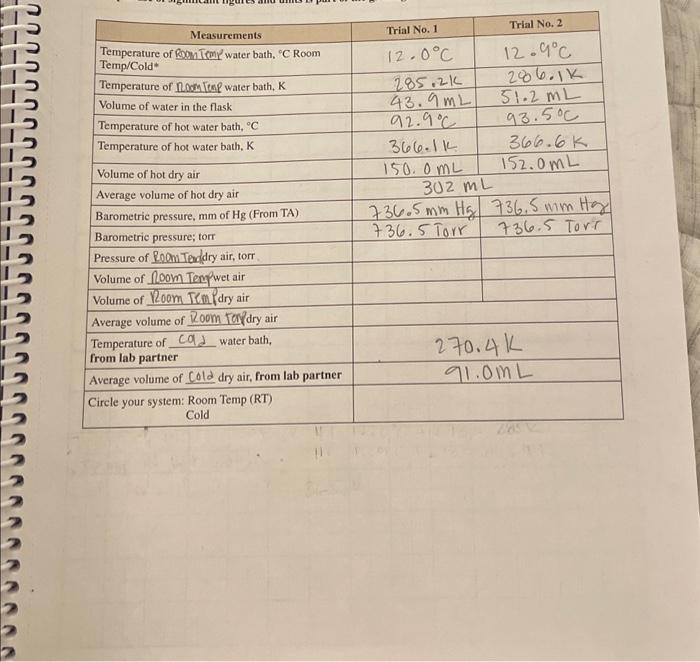 Measurements Trial No. 1 Trial No. 2
Temperature of Room Temp water bath, °C Room Temp/Cold* 12.0°C 12.9°C
Temperature of Room Temp water bath, K 285.2K 286.1K
Volume of water in the flask 43.9mL 51.2 mL
Temperature of hot water bath, °C 92.9°C 93.5°C
Temperature of hot water bath, K 366.1K 366.6K
Volume of hot dry air 150.0mL 152.0mL
Average volume of hot dry air 302 mL
Barometric pressure, mm of Hg (From TA) 736.5mm Hg 736.5 mm Hg
Barometric pressure; torr 736.5 Torr 736.5 Torr
Pressure of Room Temp dry air, torr
Volume of Room Temp wet air
Volume of Room Temp dry air
Average volume of Room Temp dry air
Temperature of Cold water bath,
from lab partner 270.4K
Average volume of Cold dry air, from lab partner 91.0mL
Circle your system: Room Temp (RT)
Cold